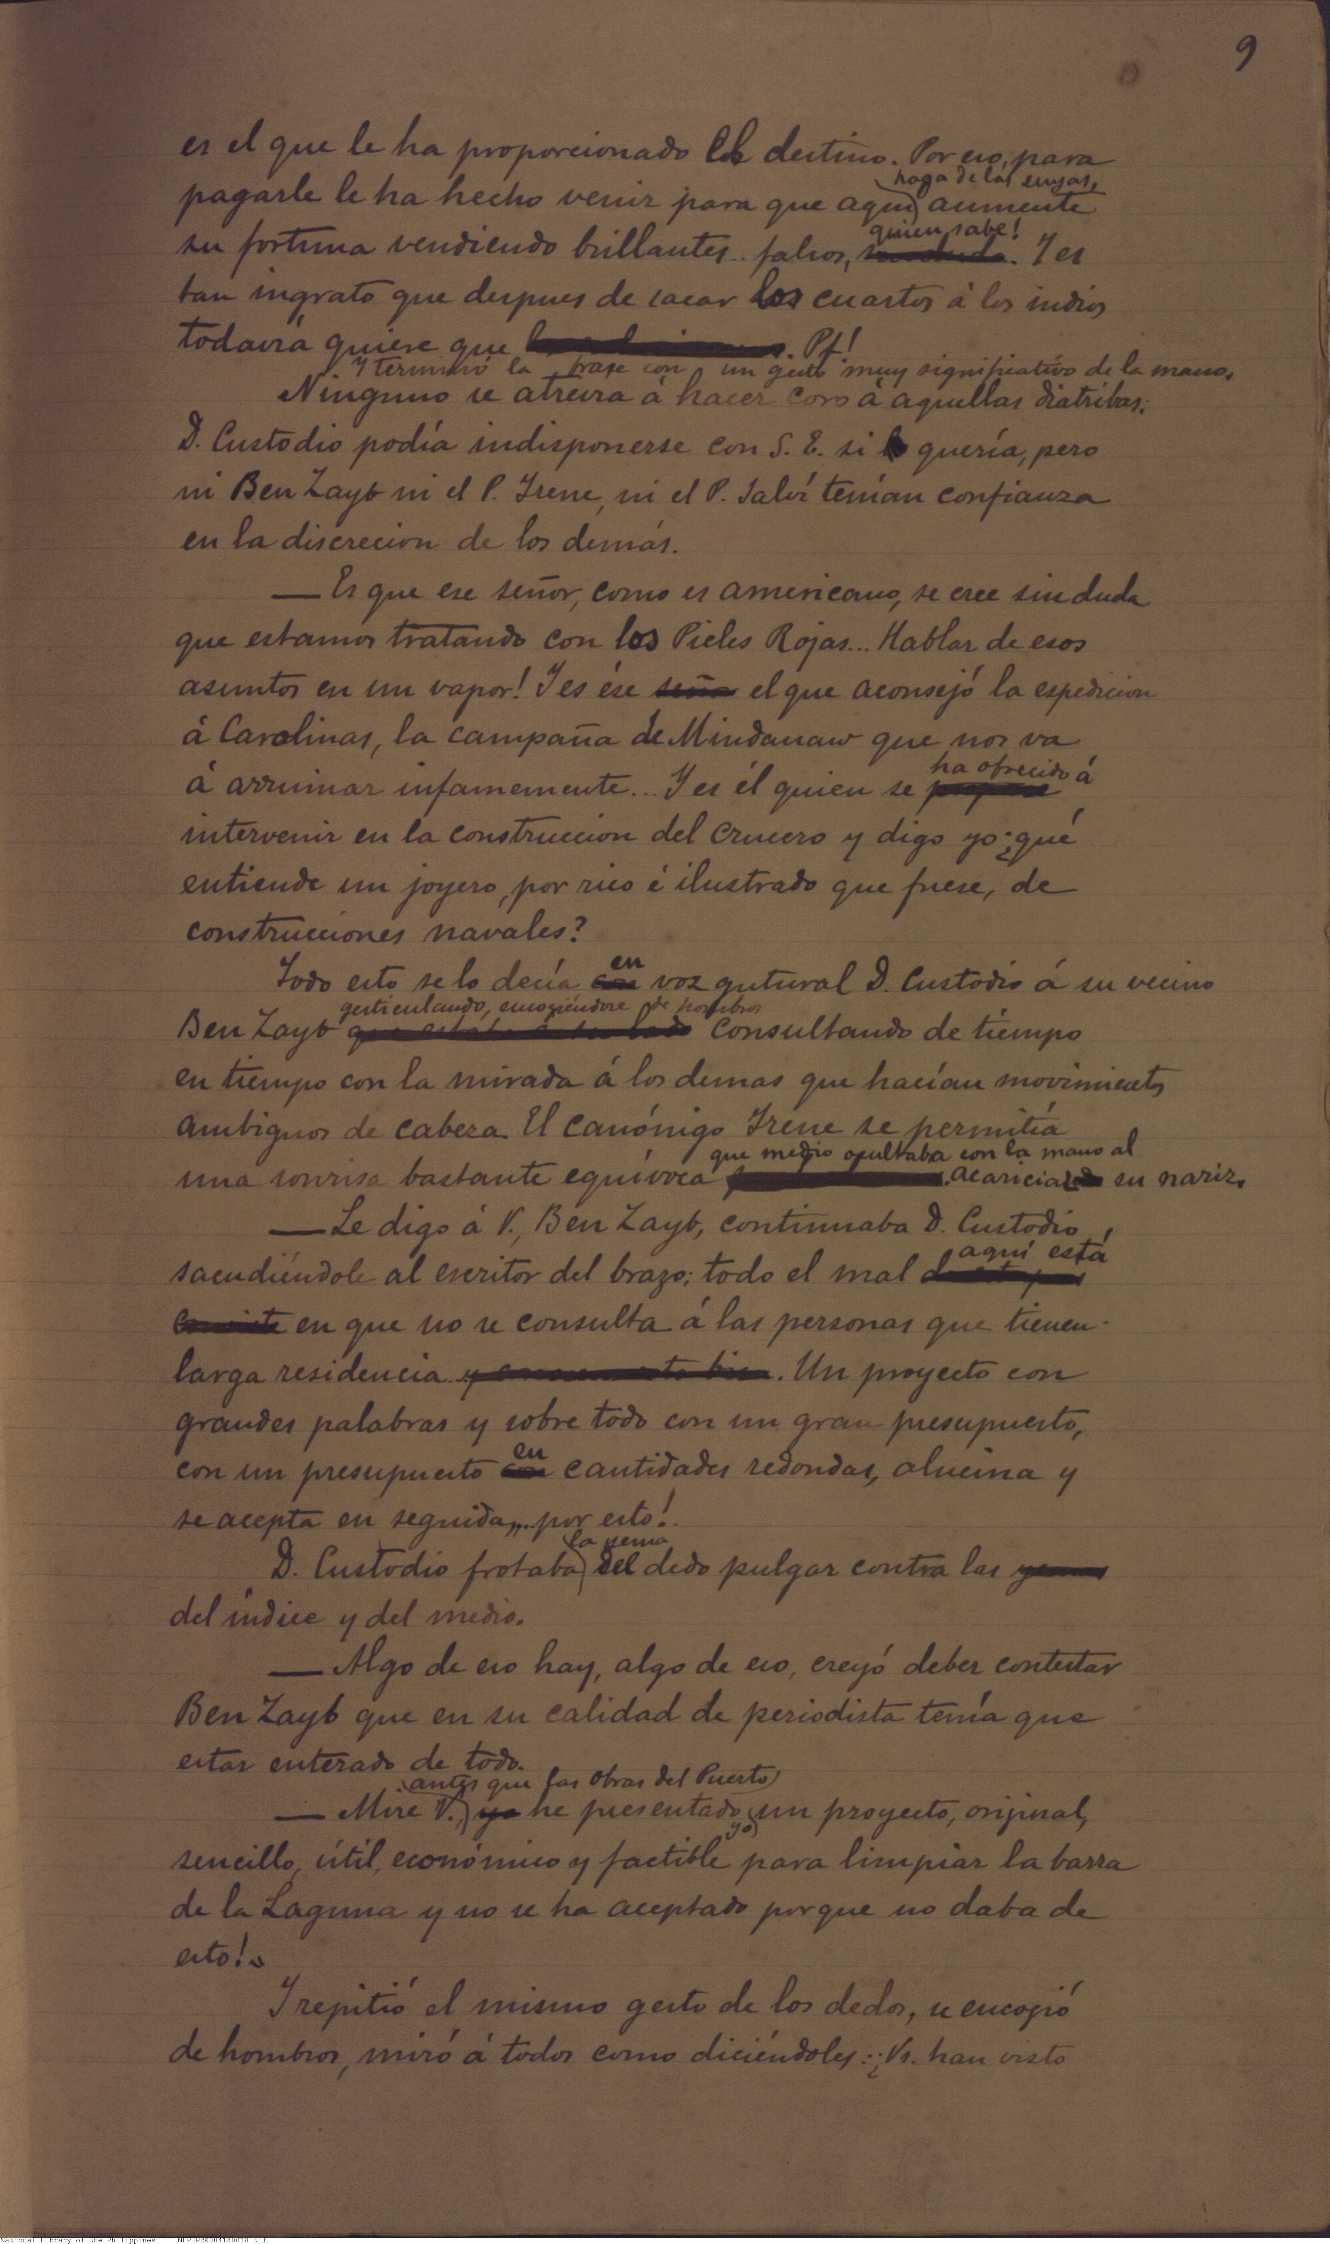 9
es el que le ha proporcionado el destino. Por eso, para
haga de las suyas,
pagarle le ha hecho venir para que aquí aumente
quien sabe!
su fortuna vendiendo brillantes.. falsos, sin duda. Y es
tan ingrato que despues de sacar los cuartos á los indios
todavía quiere que . Pf!
Y terminó la frase con un gesto muy significativo de la mano.
Ninguno se atrevía á hacer coro á aquellas diatribas;
D. Custodio podía indisponerse con S. E. si quería, pero
ni Ben Zayb ni el P. Irene, ni el P. Salví tenían confianza
en la discrecion de los demás.
— Es que ese señor, como es americano, se cree sin duda
que estamos tratando con los Pieles Rojas... Hablar de esos
asuntos en un vapor! Y es ése seño el que aconsejó la espedicion
á Carolinas, la campaña de Mindanaw que nos va
ha ofrecido á
á arruinar infamemente... Y es él quien se propone
intervenir en la construccion del crucero y digo yo ¿qué
entiende un joyero, por rico é ilustrado que fuese, de
construcciones navales?
en
Todo esto se lo decía con voz gutural D. Custodio á su vecino
gesticulando, encogiéndose de hombros
Ben Zayb que estaba á su lado consultando de tiempo
en tiempo con la mirada á los demas que hacían movimientos
ambiguos de cabeza. El canónigo Irene se permitía
que medio ocultaba con la mano al
una sonrisa bastante equívoca . acariciar su nariz.
— Le digo á V., Ben Zayb, continuaba D. Custodio
aquí está
sacudiéndole al escritor del brazo; todo el mal
consiste en que no se consulta á las personas que tienen
larga residencia . Un proyecto con
grandes palabras y sobre todo con un gran presupuesto,
en
con un presupuesto con cantidades redondas, alucina y
se acepta en seguida,... por esto!
la yema
D. Custodio frotaba del dedo pulgar contra las yemas
del índice y del medio.
— Algo de eso hay, algo de eso, creyó deber contestar
Ben Zayb que en su calidad de periodista tenía que
estar enterado de todo.
antes que las obras del Puerto
— Mire V. yo he presentado un proyecto, orijinal,
yo
sencillo, útil, económico y factible para limpiar la barra
de la Laguna y no se ha aceptado porque no daba de
esto!
Y repitió el mismo gesto de los dedos, se encogió
de hombros, miró á todos como diciéndoles: ¿Vs. han visto